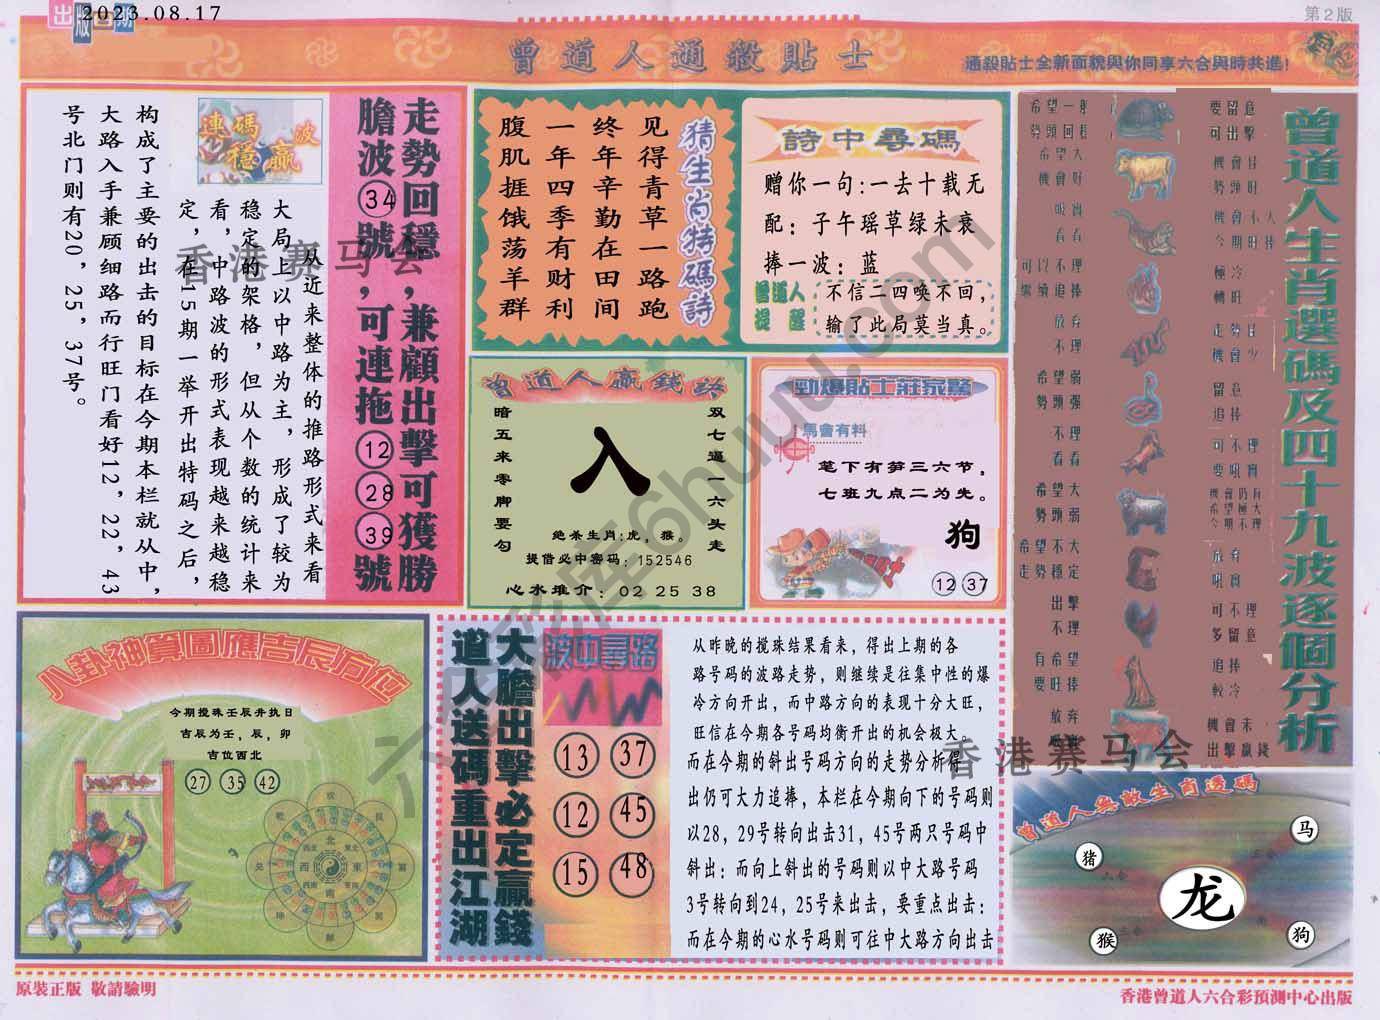 出版日期
2023.08.17
第2版
曾道人通殺貼士
通殺貼士全新面貌與你同享六合與時共進!
走勢回穩,兼顧出擊可獲勝
膽波34號,可連拖12 28 39號
連碼穩赢波
从近来整体的推路形式来看
大局上以中路为主,形成了较为
稳定的架格,但从个数的统计来
看,中路波的形式表现越来越稳
定,在15期一举开出特码之后,
构成了主要的出击的目标在今期本栏就从中,
大路入手兼顾细路而行旺门看好12,22,43
号北门则有20,25,37号。
猜生肖特碼詩
见得青草一路跑
终年辛勤在田间
一年四季有财利
腹肌捱饿荡羊群
詩中尋碼
赠你一句:一去十载无
配:子午瑶草绿未衰
捧一波:蓝
曾道人提醒
不信二四唤不回,
输了此局莫当真。
曾道人赢錢诀
双七逼一六头走
暗五来零脚要勾
入
绝杀生肖:虎,猴。
提借必中密码:152546
心水推介:02 25 38
勁爆貼士莊家驚
馬會有料
笔下有笋三六节,
七班九点二为先。
狗
12 37
曾道人生肖選碼及四十九波逐個分析
希望一般
勢頭回穩
要留意
可出擊
希望大
機會好
機會佳
勢頭旺
吸實
看看
機會不大
今期旺捧
可以不理
繼續追捧
極冷
轉旺
放弃
不理
走勢佳
機會少
希望弱
勢頭强
留意
追捧
不理
看看
可不理
要吼實
希望大
勢頭弱
機會仍有
希望極大
今期不理
希望不大
走勢穩定
放弃
吼實
出擊
不理
可不理
多留意
有希望
要旺捧
追捧
較冷
放弃
機會未
出擊贏錢
八卦神算圖應吉辰方位
今期搅珠壬辰井执日
吉辰为壬,辰,卯
吉位西北
27 35 42
大膽出擊必定贏錢
道人送碼重出江湖
波中尋路
13 37
12 45
15 48
从昨晚的搅珠结果看来,得出上期的各
路号码的波路走势,则继续是往集中性的爆
冷方向开出,而中路方向的表现十分大旺,
旺信在今期各号码均衡开出的机会极大。
而在今期的斜出号码方向的走势分析得
出仍可大力追捧,本栏在今期向下的号码则
以28,29号转向出击31,45号两只号码中
斜出:而向上斜出的号码则以中大路号码
3号转向到24,25号来出击,要重点出击:
而在今期的心水号码则可往中大路方向出击
曾道人無敵生肖透碼
马
猪
龙
猴
狗
香港赛马会
香港赛马会
六彩库6huuu.com
原裝正版 敬請驗明
香港曾道人六合彩預測中心出版